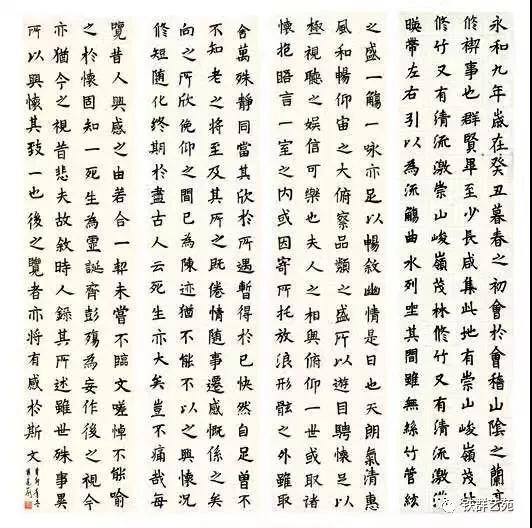 永和九年歲在癸丑暮春之初會於會稽山陰之蘭亭
修禊事也群賢畢至少長咸集此地有崇山峻嶺茂林
修竹又有清流激崇山峻嶺茂林修竹又有清流激湍
暎帶左右引以為流觴曲水列坐其間雖無絲竹管絃
之盛一觴一咏亦足以暢敘幽情是日也天朗氣清惠
風和暢仰宙之大俯察品類之盛所以遊目騁懷足以
極視聽之娛信可樂也夫人之相與俯仰一世或取諸
懷抱晤言一室之內或因寄所托放浪形骸之外雖取
舍萬殊靜同當其欣於所遇暫得於己快然自足曾不
不知老之將至及其所之既倦情隨事遷感慨係之矣
向之所欣俛仰之間已為陳迹猶不能不以之興懷況
修短隨化終期於盡古人云死生亦大矣豈不痛哉每
覽昔人興感之由若合一契未嘗不臨文嗟悼不能喻
之於懷固知一死生為虛誕齊彭殤為妄作後之視今
亦猶今之視昔悲夫故敘時人錄其所述雖世殊事異
所以興懷其致一也後之覽者亦將有感於斯文
铁群艺苑